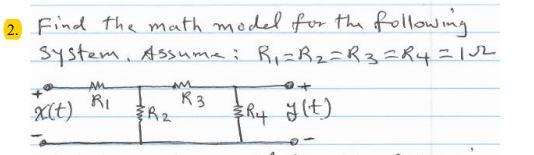 2. Find the math model for the following
system. Assume: R₁=R₂=R3=R4=1Ω
+ +
x(t) R1 R2 R3 R4 y(t)
- -